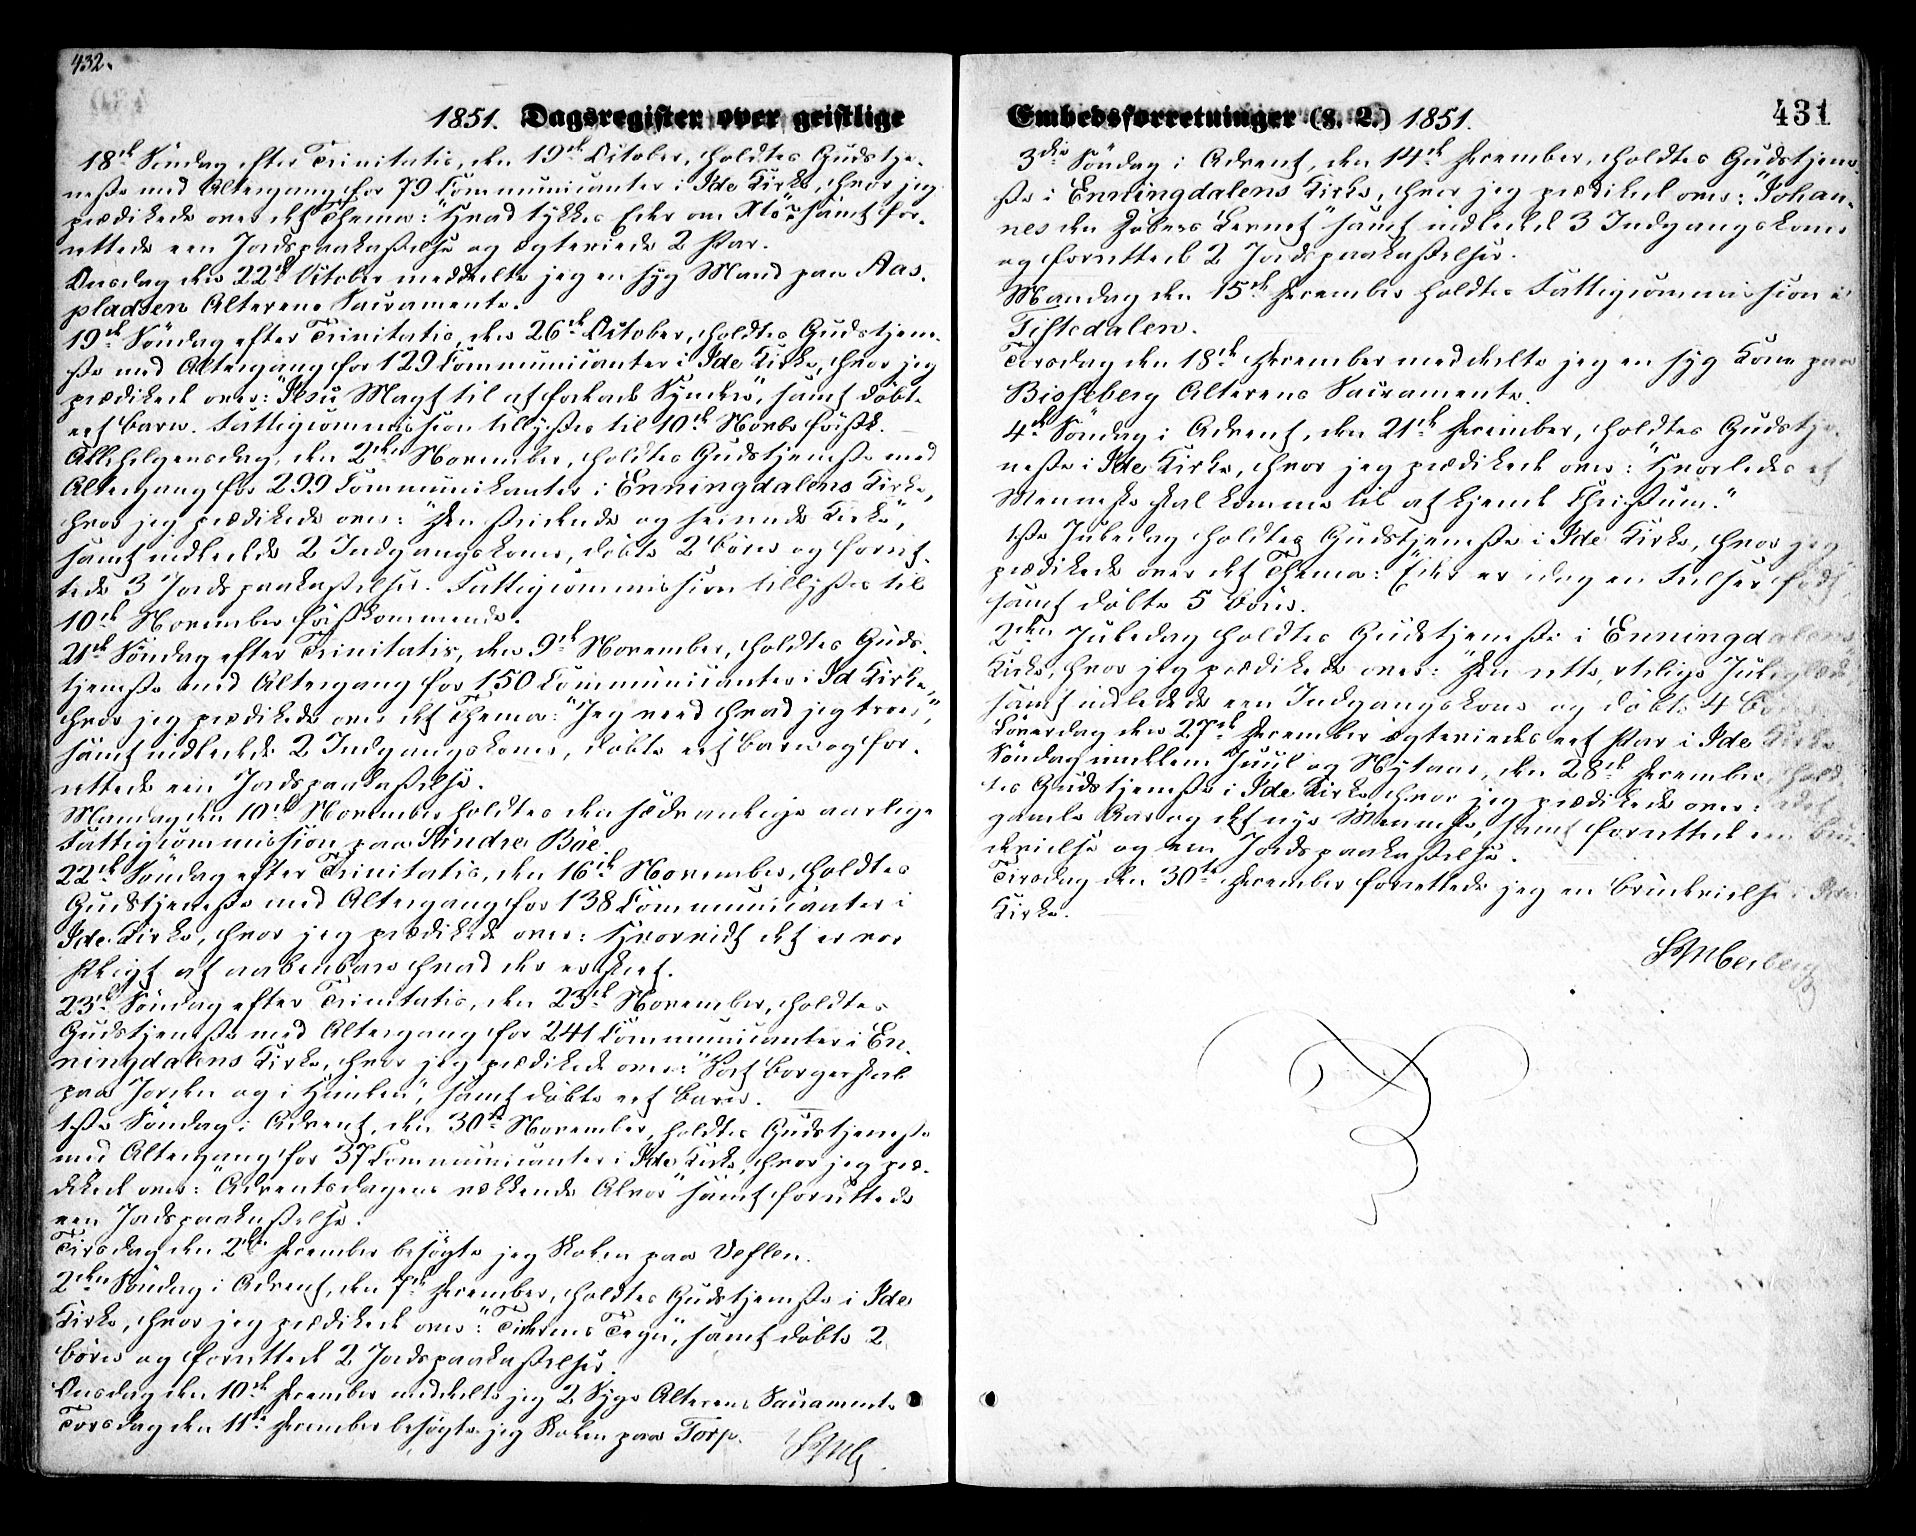 432.
1851. Dagsregister over geistlige
18de Söndag efter Trinitatis, den 19de October, holdtes Gudstje-
neste med Altergang for 79 Communicanter i Ide Kirke, hvor jeg
prædikede over det Thema: "Hvad tykkes Eder om Xto", samt for-
rettede een Jordspaakastelse og ægteviede 2 Par.
Onsdag den 22de October meddelte jeg en syg Mand paa Aas-
pladsen Alterens Sacramente.
19de Söndag efter Trinitatis, den 26de October, holdtes Gudstjene-
ste med Altergang for 129 Communicanter i Ide Kirke, hvor jeg
prædikede over: "Jesu Magt til at forlade Synder", samt döbte
eet Barn. Fattigcommission tillystes til 10de Novbr förstk.
Allehelgensdag, den 2den November, holdtes Gudstjeneste med
Altergang for 299 Communikanter i Enningdalens Kirke,
hvor jeg prædikede over: "Den stridende og seirende Kirke",
samt indledede 2 Indgangskoner, döbte 2 Börn og forret-
tede 3 Jordspaakastelser. Fattigcommission tillystes til
10de November förstkommende.
21de Söndag efter Trinitatis, den 9de November, holdtes Guds-
tjeneste med Altergang for 150 Communicanter i Id Kirke,
hvor jeg prædikede over det Thema: "Jeg veed hvad jeg troer",
samt indledede 2 Indgangskoner, döbte eet Barn og for-
rettede een Jordspaakastelse.
Mandag den 10de November holdtes den sædvanlige aarlige
Fattigcommission paa Söndre Böe.
22de Söndag efter Trinitatis, den 16de November, holdtes
Gudstjeneste med Altergang for 138 Communicanter i
Ide Kirke, hvor jeg prædikede over: Hvorvidt det er vor
Pligt at aabenbare hvad der er skeet.
23de Söndag efter Trinitatis, den 23de November, holdtes
Gudstjeneste med Altergang for 241 Communicanter i En-
ningdalens Kirke, hvor jeg prædikede over: "Vort Borgerskab
paa Jorden og i Himlen", samt döbte eet Barn.
1ste Söndag i Advent, den 30te November, holdtes Gudstjeneste
med Altergang for 37 Communicanter i Ide Kirke, hvor jeg præ-
dikede over: "Adventsdagens vækkende Alvor" samt forrettede
een Jordspaakastelse.
Tirsdag den 2den December besögte jeg Skolen paa Veflen.
2den Söndag i Advent, den 7de December, holdtes Gudstjeneste i Ide
Kirke, hvor jeg prædikede over: "Tidernes Tegn", samt döbte 2
Börn og forrettede 2 Jordspaakastelser.
Onsdag den 10de December meddelte jeg 2 Syge Alterens Sacramente
Torsdag den 11te December besögte jeg Skolen paa Torp.
Embedsforretninger (§. 2.) 1851.
431
3die Söndag i Advent, den 14de December, holdtes Gudstjene-
ste i Enningdalens Kirke, hvor jeg prædikede over: "Johan-
nes den Döbers Levnet" samt indledede 3 Indgangskoner
og forrettede 2 Jordspaakastelser.
Mandag den 15de December holdtes Fattigcommission i
Tistedalen.
Torsdag den 18de December meddelte jeg en syg Kone paa
Bisseberg Alterens Sacramente.
4de Söndag i Advent, den 21de December, holdtes Gudstje-
neste i Ide Kirke, hvor jeg prædikede over: "Hvorledes et
Menneske skal komme til at kjende Christum."
1ste Juledag holdtes Gudstjeneste i Ide Kirke, hvor jeg
prædikede over det Thema: "Eder er idag en Frelser född",
samt döbte 5 Börn.
2den Juledag holdtes Gudstjeneste i Enningdalens
Kirke, hvor jeg prædikede over: "Den rette christelige Juleglæde",
samt indledede een Indgangskone og döbte 4 Börn.
Löverdag den 27de December ægteviedes eet Par i Ide Kirke
Söndag imellem Juul og Nytaar, den 28de December, hold-
tes Gudstjeneste i Ide Kirke, hvor jeg prædikede over: det
gamle Aar og det nye Menneske, samt forrettede een Bru-
devielse og een Jordspaakastelse.
Tirsdag den 30te December forrettede jeg en Brudevielse i Ide
Kirke.